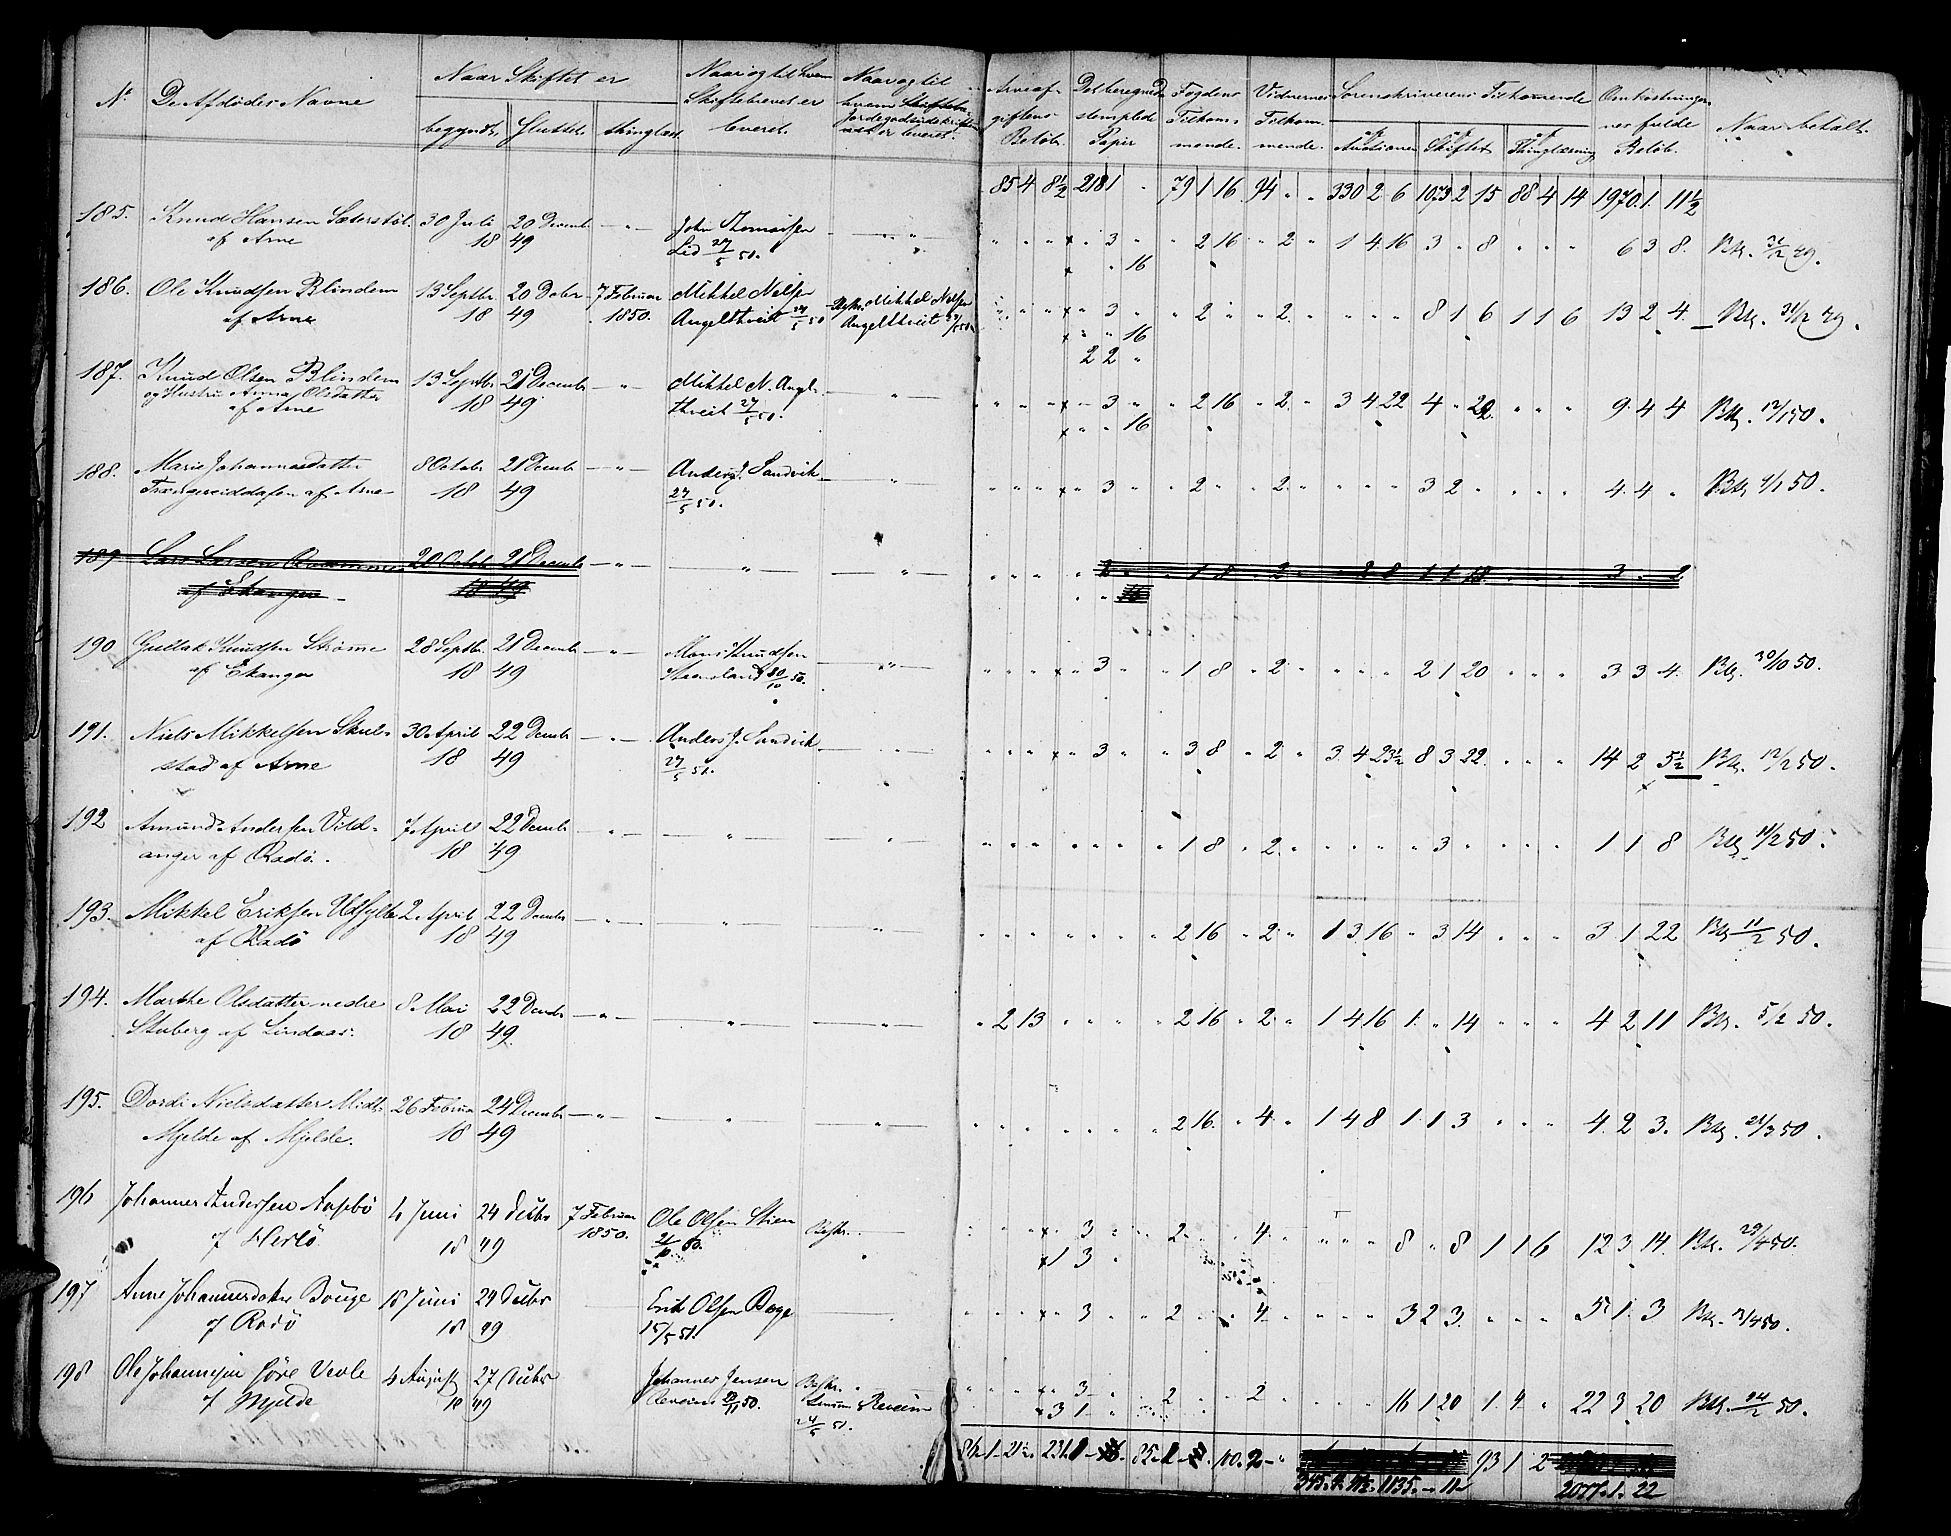 No De Afdødes Navne Naar Skiftet er Naar og til hvem Naar og til
begyndt. sluttet. thinglæst Skiftebrevet er leveret. hvem
Jordegodsudskriften er leveret.
Arveaf- Det beregnede Fogdens Vidnernes Sorenskriverens Tilkommende Omkostninger- Naar betalt.
giftens stemplede Tilkom- Tilkom- af af af nes fulde
Beløb. Papir mende. mende. Auctionen Skiftet Thinglæsning Beløb.
85 4 8½ 218 1 " 79 1 16 94 " " 330 2 6 1073 2 15 88 4 14 1970 1 11½
185. Knud Hansen Sæterstøl 30 Juli 20 Decemb. — " — John Thomassen — " — " " " x " 3 " " 2 16 " 2 " 1 4 16 3 " 8 " " " 6 3 8. Btlg. 31/12 49.
af Arne 18 49 Lid 27/5 50. x " 16
186. Ole Knudsen Blindem 13 Septbr 20 Decbr 7 Februar Mikkel Nilsen Mikkel Nilsen " " " x " 3 " " 2 " " 2 " " " " 8 1 6 1 1 6 13 2 4. Btlg. 31/12 49.
af Arne 18 49 1850. Angeltveit 27/5 50 Angeltveit 27/5 50 x " " 16
2 2 "
187. Knud Olsen Blindem 13 Septbr 21 Decembr — " — Mikkel N. Angel- — " — " " " x " 3 " " 2 16 " 2 " 3 4 22 4 " 22 " " " 9 4 4 Btlg. 12/1 50.
og Hustru Anna Olsdatter
af Arne 18 49 tveit 27/5 50. x " " 16
188. Marie Johannesdatter 8 Octobr 21 Decembr — " — Anders J. Sandvik — " — " " " x " 3 " " 2 " " 2 " " " " 3 2 " " " " 4 4 " Btlg 9/1 50.
af Arne 18 49 27/5 50.
189 Lars Larsen 20 Octobr 21 Decembr — " — " — " — " " " " 2 " " 1 8 " 2 " " 2 8 1 1 18 " " " 3 " 2
af Ekanger 18 49 " " 16
190 Gullak Knudsen Strømme 28 Septbr. 21 Decemb. — " — Mons Knudsen — " — " " " x " 3 " " 1 8 " 2 " " " " 2 1 20 " " " 3 3 4. Btlg. 30/10 50.
af Ekanger 18 49 30/10 50.
191. Niels Mikkelsen Skul- 30 April 22 Decembr — " — Anders J. Sandvik — " — " " " x " 3 " " 3 8 " 2 " 3 4 23½ 8 3 22. " " " 14 2 5½ Btlg. 12/2 50.
stad af Arne 18 49 27/5 51.
192 Amund Andersen Vild- 7 April 22 Decembr — " — " — " — " " " " " " " 1 8 " 2 " " " " " 3 " " " " 1 1 8 Btlg. 14/2 50.
anger af Radö. 18 49
193. Mikkel Eriksen Udsylte 2 April 22 Decembr — " — " — " — " " " " " " " 2 16 " 2 " 1 3 16 " 3 14 " " " 3 1 22 Btlg 11/2 50.
af Radö 18 49
194. Marthe Olsdatter nedre 8 Mai 22 Decembr — " — " — " — " 2 13 " " " " 2 16 " 2 " 1 4 16 1 " 14 " " " 4 2 11 Btlg. 5/2 50.
Skuberg af Lindaas. 18 49.
195. Dordi Nielsdatter Midt- 26 Februar 24 Decembr — " — " — " — " " " " " " " 2 16. " 4. " 1 4 8 1. 1 3 " " " 4. 2 3. Btlg. 21/3 50.
Mjelde af Mjelde. 18 49
196 Johannes Andersen Aasebö 4 Juni 24 Decbr 7 Februar Ole Olsen Stien Beskr. — " " " x " 3 " " 2 " " 4 " " " " 8 " 8 1 1 6 12 3 14. Btlg. 29/4 50.
af Herlö 18 49 1850. 21/10 50. x 1 3 "
197 Anne Johannesdatter Bouge 18 Juni 24 Decbr Erik Olsen Boge " " " x " 3 " " 2 " " 4 " " " " 3 2 3. " " " 5 1. 3 Btlg. 3/4 50.
af Radö 18 49 15/5 51.
198 Ole Johannesen 4 August 27 Decbr Johannes Jensen Beskr. " " " " x " 3 " " 2 " " 2 " " " " 16 1 20 1. 4 " 22 3 20 Btlg. 24/2 50.
af Mjelde 18 49 Reveim 50. Reveim x 3 1 "
24/5 51.
100. 2 " 93 1 2
1135. - 11 2077. 1. 22